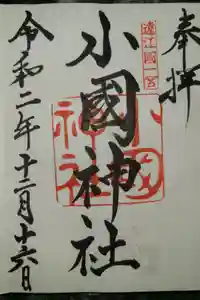 奉拝
遠江國一宮
小國神社
小國神社
令和二年十二月十六日